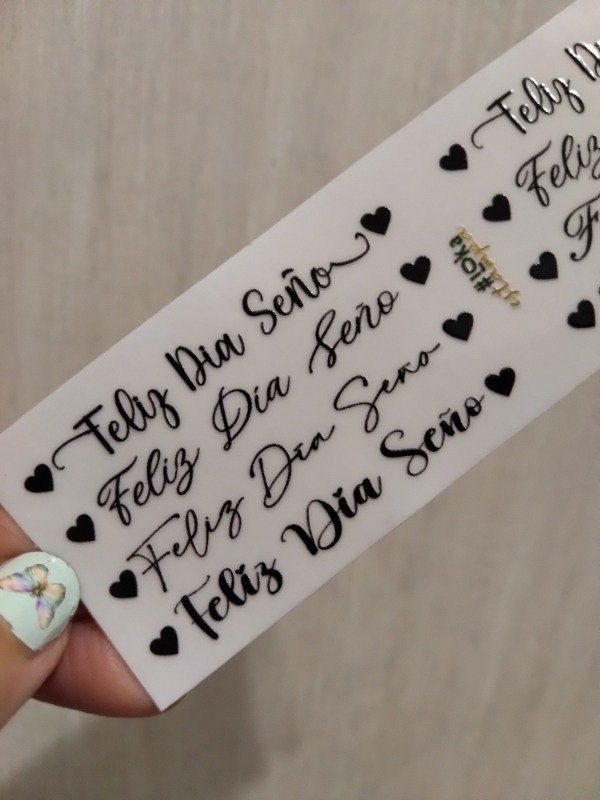 Feliz Dia Seño
Feliz Dia Seño
Feliz Dia Seño
Feliz Dia Seño
#LOKA
Feliz
Feliz